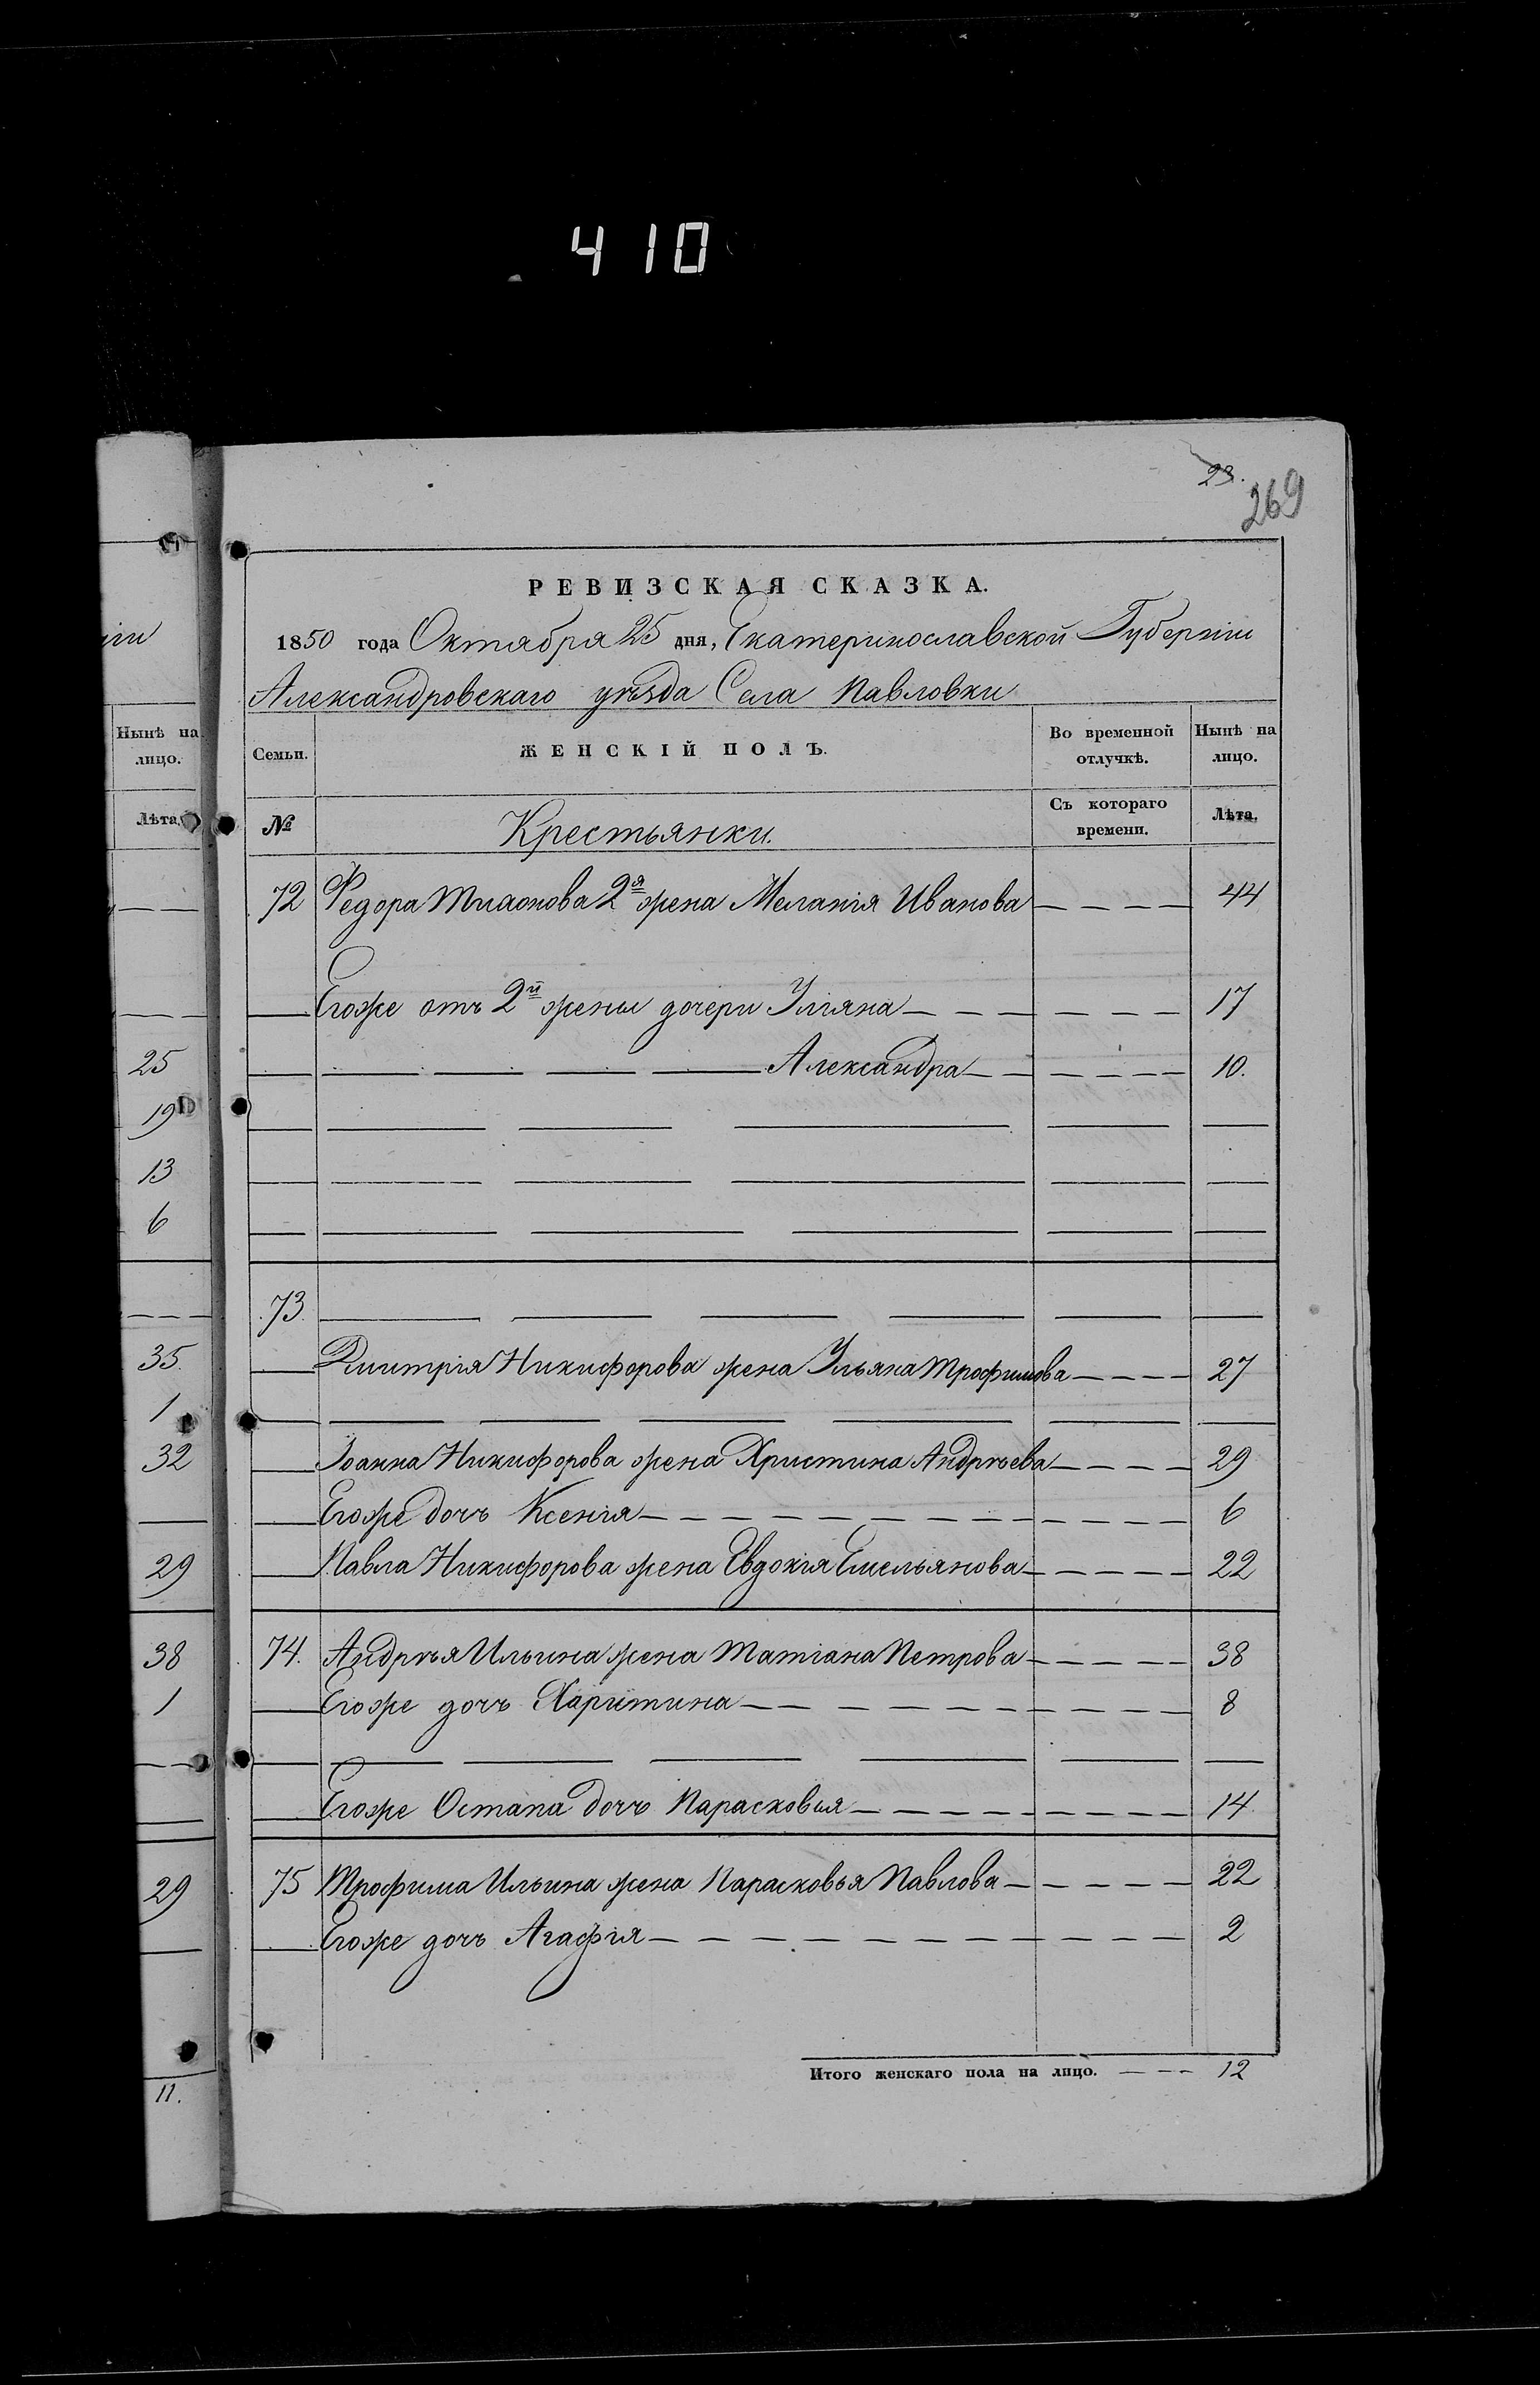 410
23.
269
РЕВИЗСКАЯ СКАЗКА.
1850 года Октября 25 дня, Екатеринославской Губерніи
Александровскаго уѣзда Села Павловки
Семьи. ЖЕНСКІЙ ПОЛЪ. Во временной отлучкѣ. Нынѣ на лицо.
№ Крестьянки. Съ котораго времени. Лѣта.
72 Федора Тихонова 2я жена Меланія Иванова 44
Егоже отъ 2й жены дочери Уліяна 17
Александра 10.
73.
Дмитрія Никифорова жена Ульяна Трофимова 27
Іоанна Никифорова жена Христина Андрѣева 29
Егоже дочь Ксенія 6
Павла Никифорова жена Евдокія Емельянова 22
74. Андрѣя Ильина жена Матіана Петрова 38
Егоже дочь Харитина 8
Егоже Остапа дочь Парасковія 14
75 Трофима Ильина жена Парасковья Павлова 22
Егоже дочь Агафія 2
Итого женскаго пола на лицо. 12
іи
Нынѣ на лицо.
Лѣта.
25
19
13
6
35.
1
32
29
38
1
29
11.